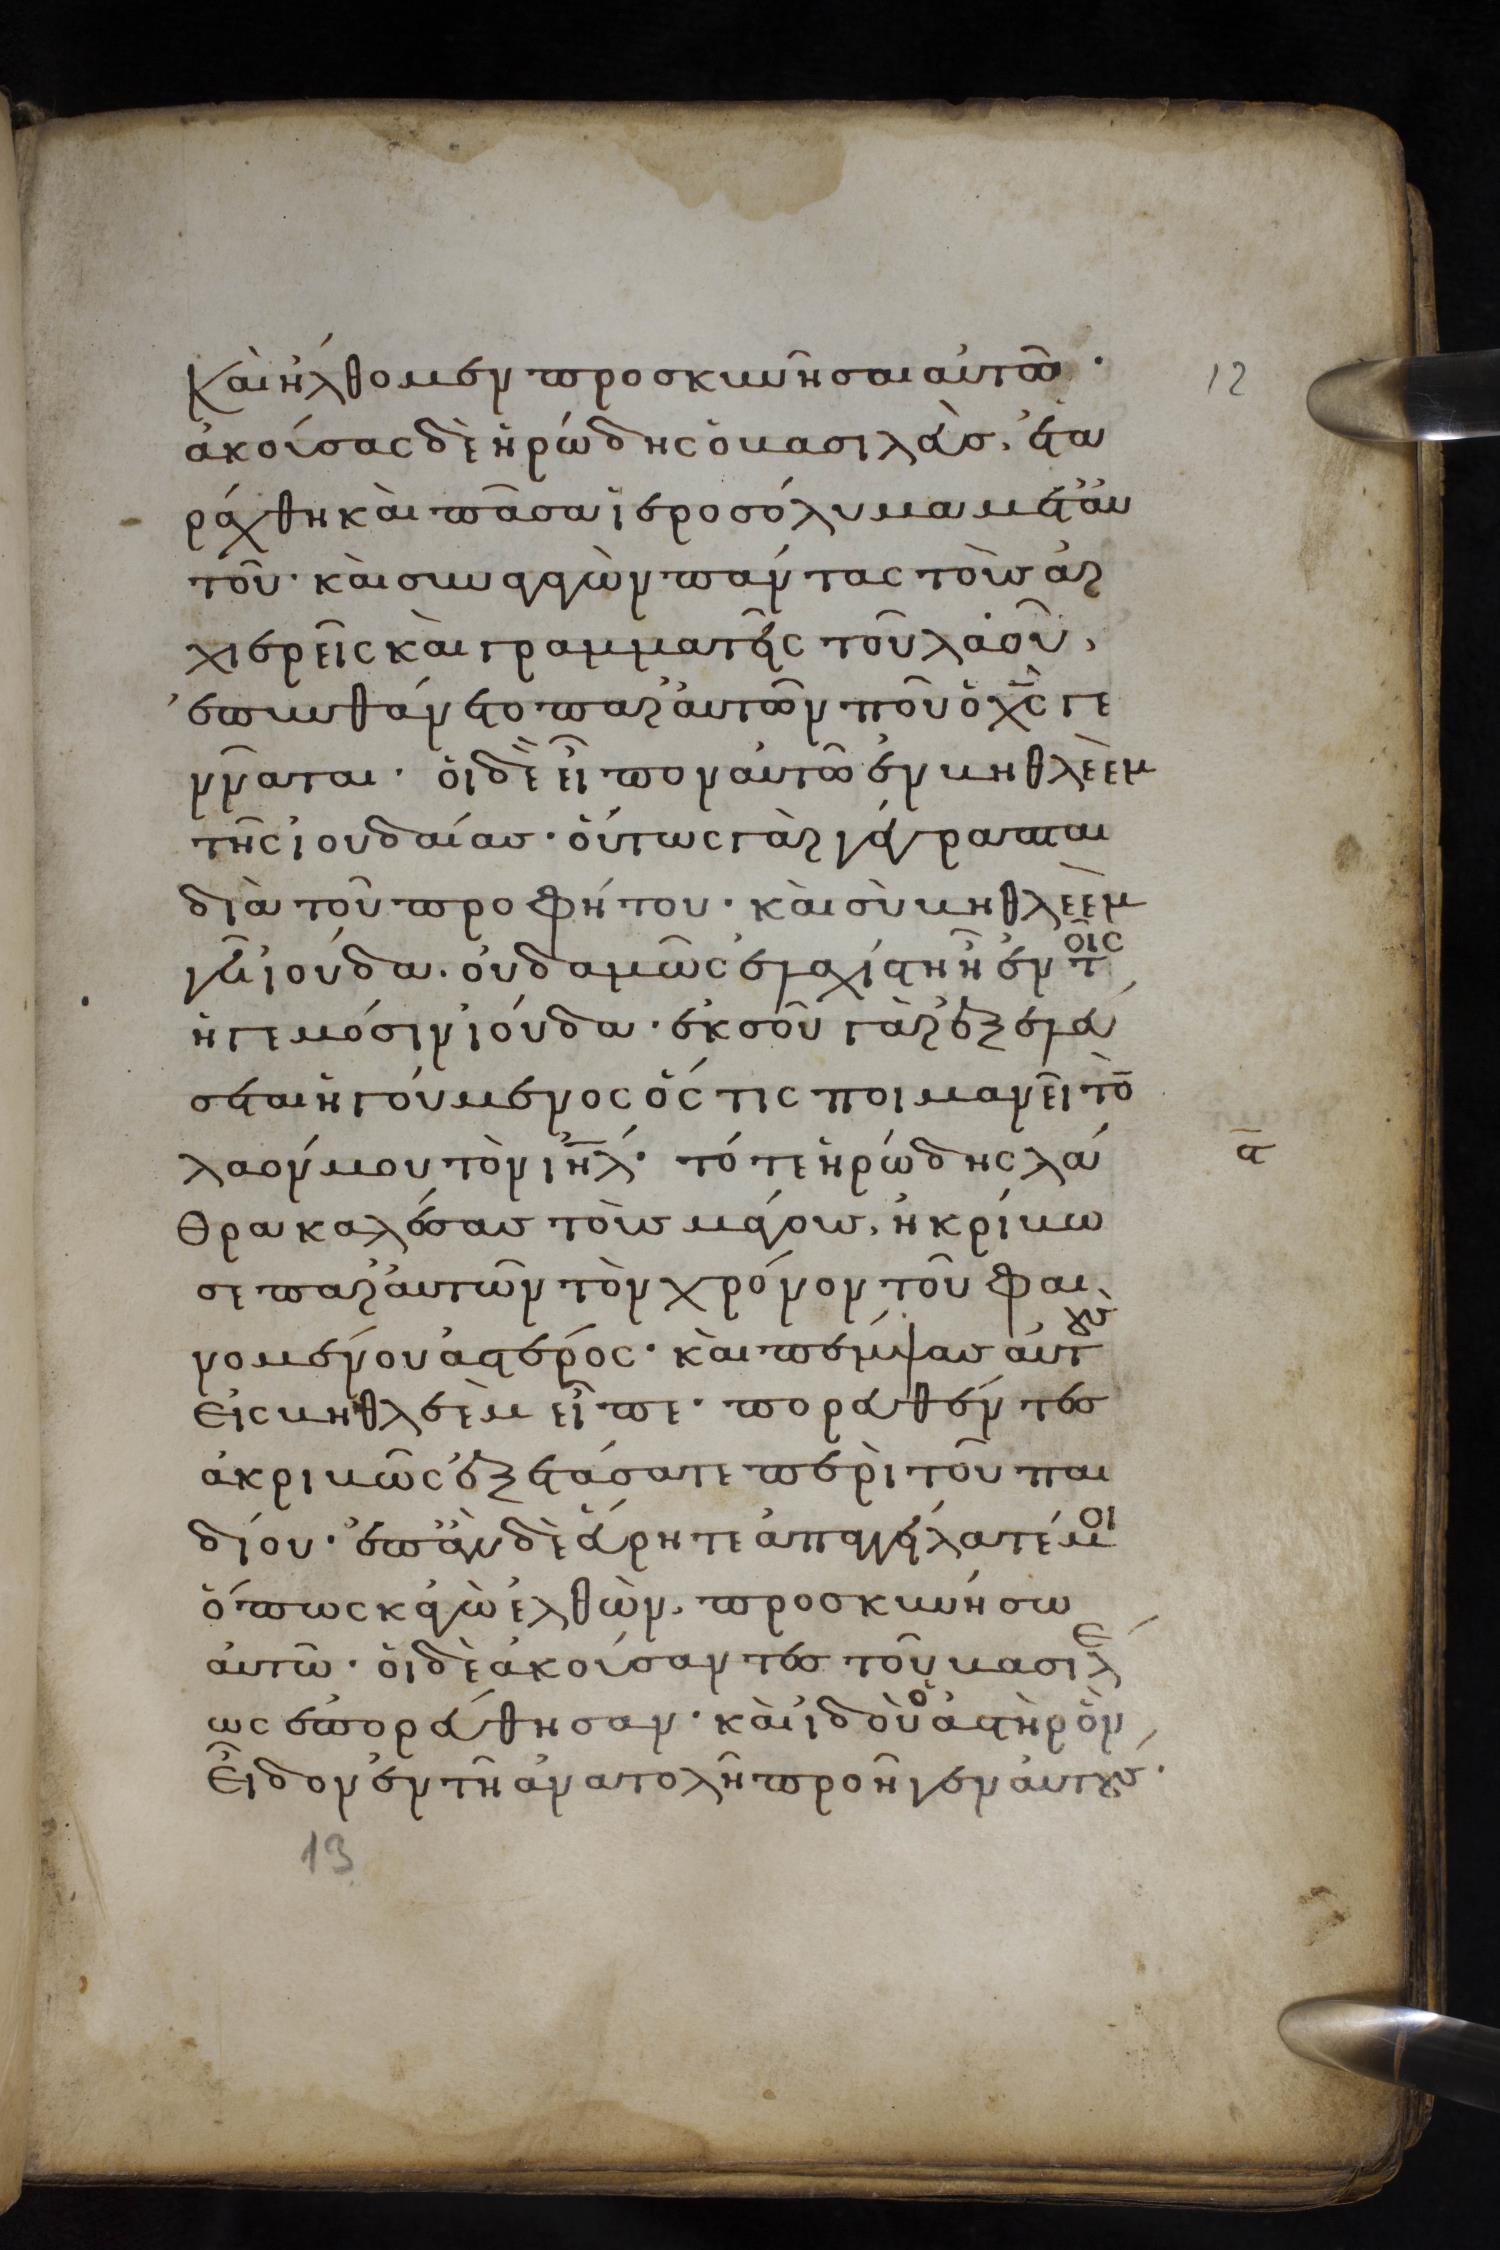 Καὶ ἤλθομεν προσκυνῆσαι αὐτῶ ·
ἀκούσας δὲ ἡρώδης ὁ βασιλεὺς, ἐτα
ράχθη καὶ πᾶσα ἱεροσόλυμα μετ' αὐ
τοῦ · καὶ συναγαγὼν πάντας τοὺς ἀρ
χιερεῖς καὶ γραμματεῖς τοῦ λαοῦ,
ἐπυνθάνετο παρ' αὐτῶν ποῦ ὁ χ̅ς γε
ννᾶται · οἱ δὲ εἶπον αὐτῶ ἐν βηθλεὲμ
τῆς ἰουδαίας · οὕτως γὰρ γέγραπται
διὰ τοῦ προφήτου · καὶ σὺ βηθλεὲμ
γῆ ἰούδα · οὐδαμῶς ἐλαχίστη ἦ ἐν τοῖς
ἡγεμόσιν ἰούδα · ἐκ σοῦ γὰρ ἐξελεύ
σεται ἡγούμενος ὅστις ποιμανεῖ τὸ
λαόν μου τὸν ι̅η̅λ · τότε ἡρώδης λά
θρα καλέσας τοὺς μάγους, ἠκρίβω
σε παρ' αὐτῶν τὸν χρόνον τοῦ φαι
νομένου ἀστέρος · καὶ πέμψας αὐτοὺς
εἰς βηθλεὲμ εἶπε · πορευθέντες
ἀκριβῶς ἐξετάσατε περὶ τοῦ παι
δίου · ἐπὰν δὲ εὕρητε ἀπαγγείλατέ μοι
ὅπως κἀγὼ ἐλθὼν, προσκυνήσω
αὐτῶ · οἱ δὲ ἀκούσαντες τοῦ βασιλέ
ως ἐπορεύθησαν · καὶ ἰδοὺ ὁ ἀστὴρ ὃν
εἶδον ἐν τῆ ἀνατολῆ προῆγεν αὐτούς ·
12
α̅
13